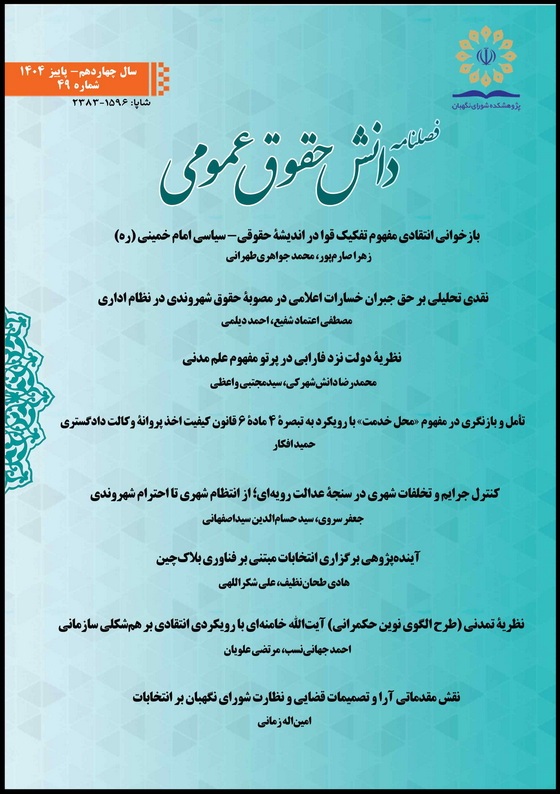 سال چهاردهم– پاییز ۱۴۰۴
شماره ۴۹
شاپا: ۱۵۹۶-۲۳۸۳
پژوهشکده شورای نگهبان
فصلنامه
دانش حقوق عمومی
بازخوانی انتقادی مفهوم تفکیک قوا در اندیشۀ حقوقی– سیاسی امام خمینی (ره)
زهرا صارم‌پور، محمد جواهری‌طهرانی
نقدی تحلیلی بر حق جبران خسارات اعلامی در مصوبۀ حقوق شهروندی در نظام اداری
مصطفی اعتماد شفیع، احمد دیلمی
نظریۀ دولت نزد فارابی در پرتو مفهوم علم مدنی
محمدرضا دانش‌شهرکی، سیدمجتبی واعظی
تأمل و بازنگری در مفهوم «محل خدمت» با رویکرد به تبصرۀ ۴ مادۀ ۶ قانون کیفیت اخذ پروانۀ وکالت دادگستری
حمید افکار
کنترل جرایم و تخلفات شهری در سنجۀ عدالت رویه‌ای؛ از انتظام شهری تا احترام شهروندی
جعفر سروی، سید حسام‌الدین سیداصفهانی
آینده‌پژوهی برگزاری انتخابات مبتنی بر فناوری بلاک‌چین
هادی طحان‌نظیف، علی شکراللهی
نظریۀ تمدنی (طرح الگوی نوین حکمرانی) آیت‌الله خامنه‌ای با رویکردی انتقادی بر هم‌شکلی سازمانی
احمد جهانی‌نسب، مرتضی علویان
نقش مقدماتی آرا و تصمیمات قضایی و نظارت شورای نگهبان بر انتخابات
امین‌اله زمانی